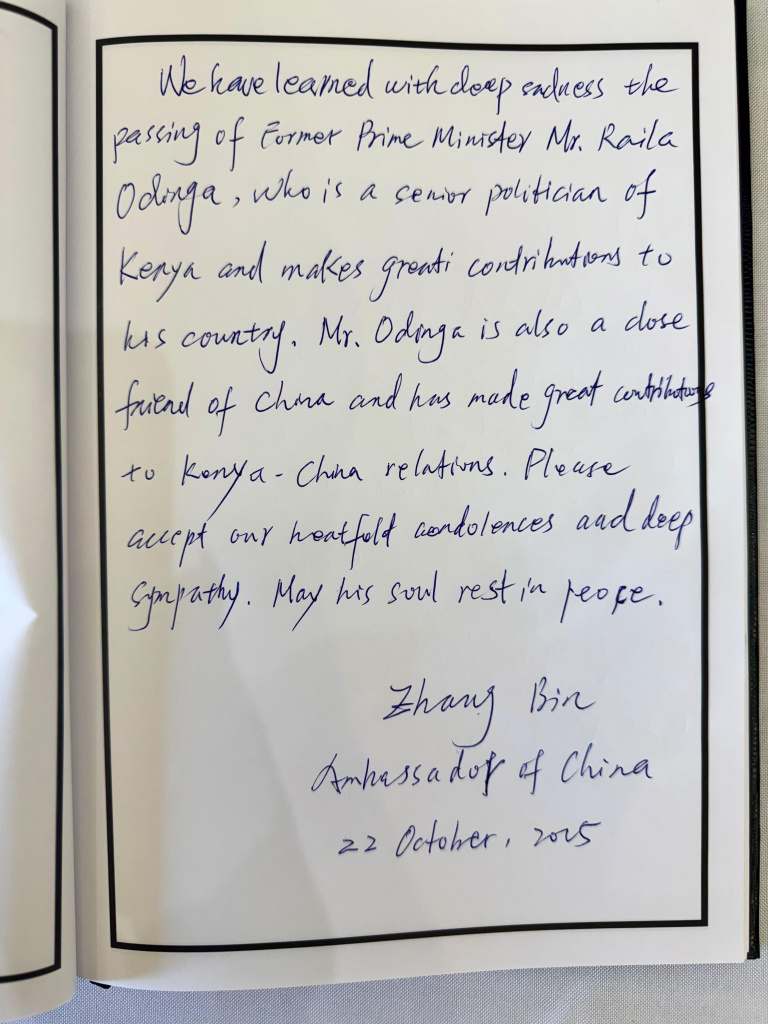 We have learned with deep sadness the
passing of Former Prime Minister Mr. Raila
Odinga, who is a senior politician of
Kenya and makes great contributions to
his country. Mr. Odinga is also a close
friend of China and has made great contributions
to Kenya-China relations. Please
accept our heatfeld condolences and deep
sympathy. May his soul rest in peace.
Zhang Bin
Ambassador of China
22 October, 2025